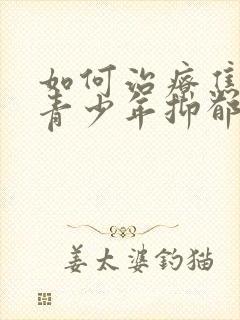 如何治疗焦
青少年抑郁
姜太婆钓猫